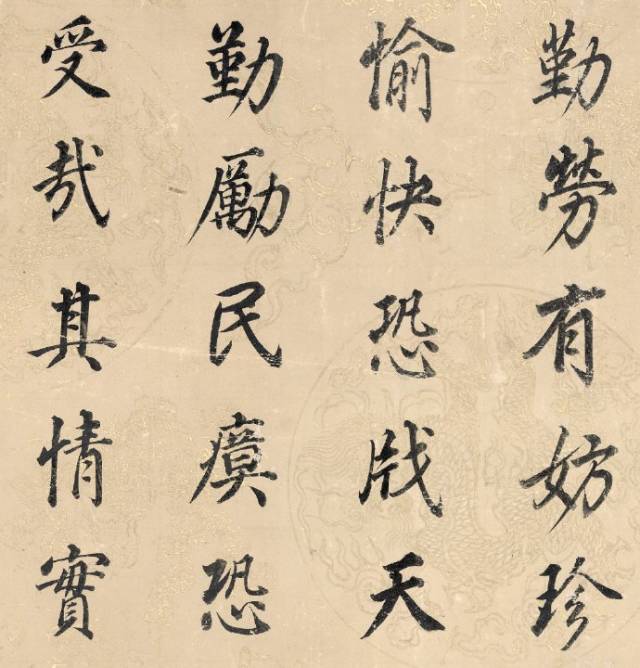 勤勞有妨珍
愉快恐戕天
勤勵民瘼恐
受哉其情實